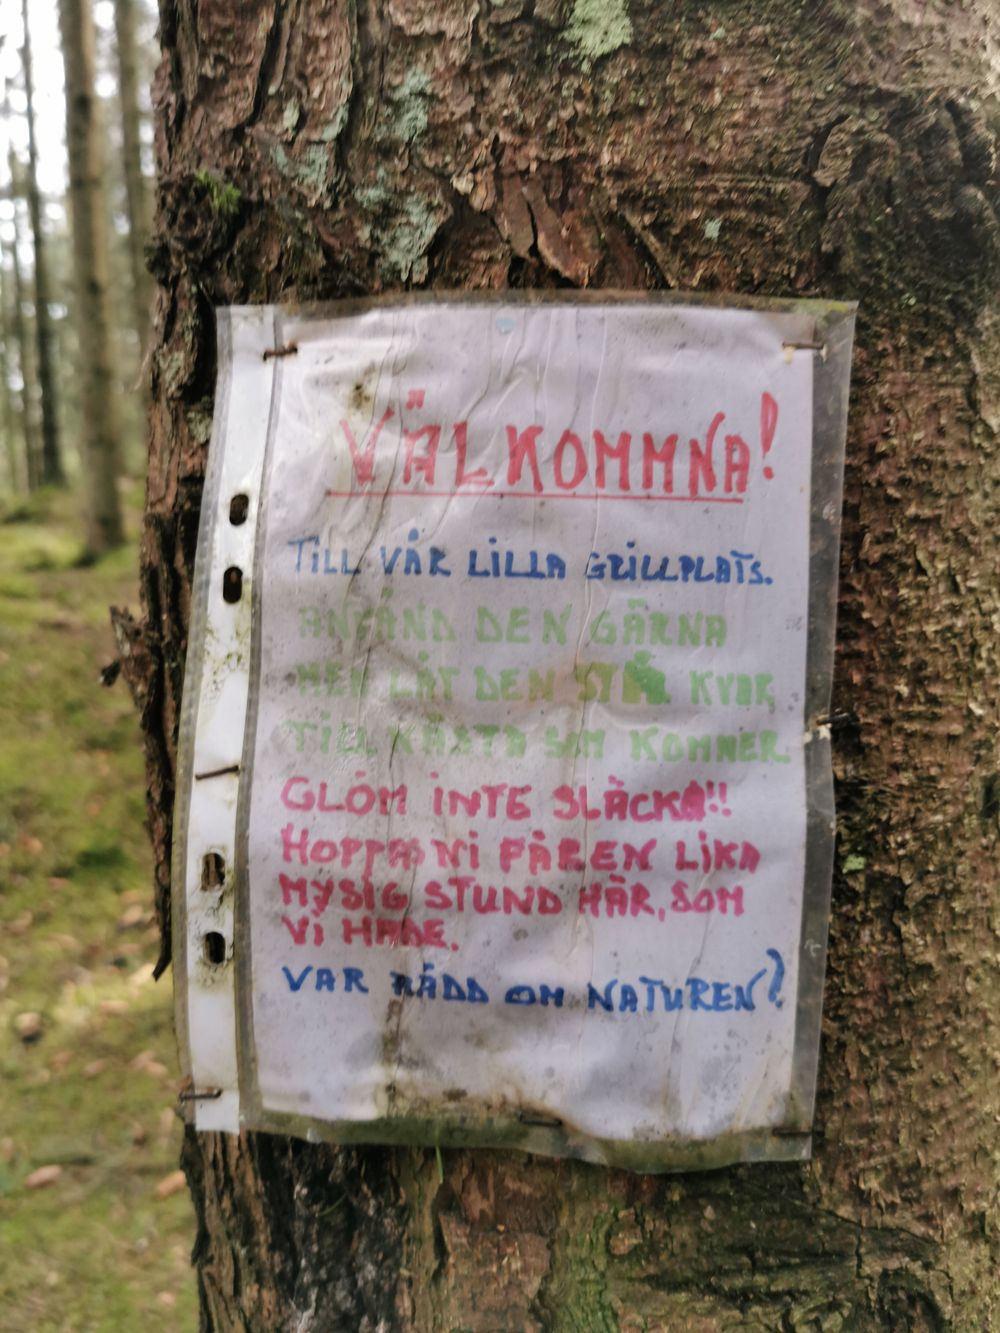 VÄLKOMMNA!
TILL VÅR LILLA GRILLPLATS.
ANVÄND DEN GÄRNA
MEN LÅT DEN STÅ KVAR
TILL NÄSTA SOM KOMMER.
GLÖM INTE SLÄCKA!!
HOPPAS NI FÅR EN LIKA
MYSIG STUND HÄR, SOM
VI HADE.
VAR RÄDD OM NATUREN!